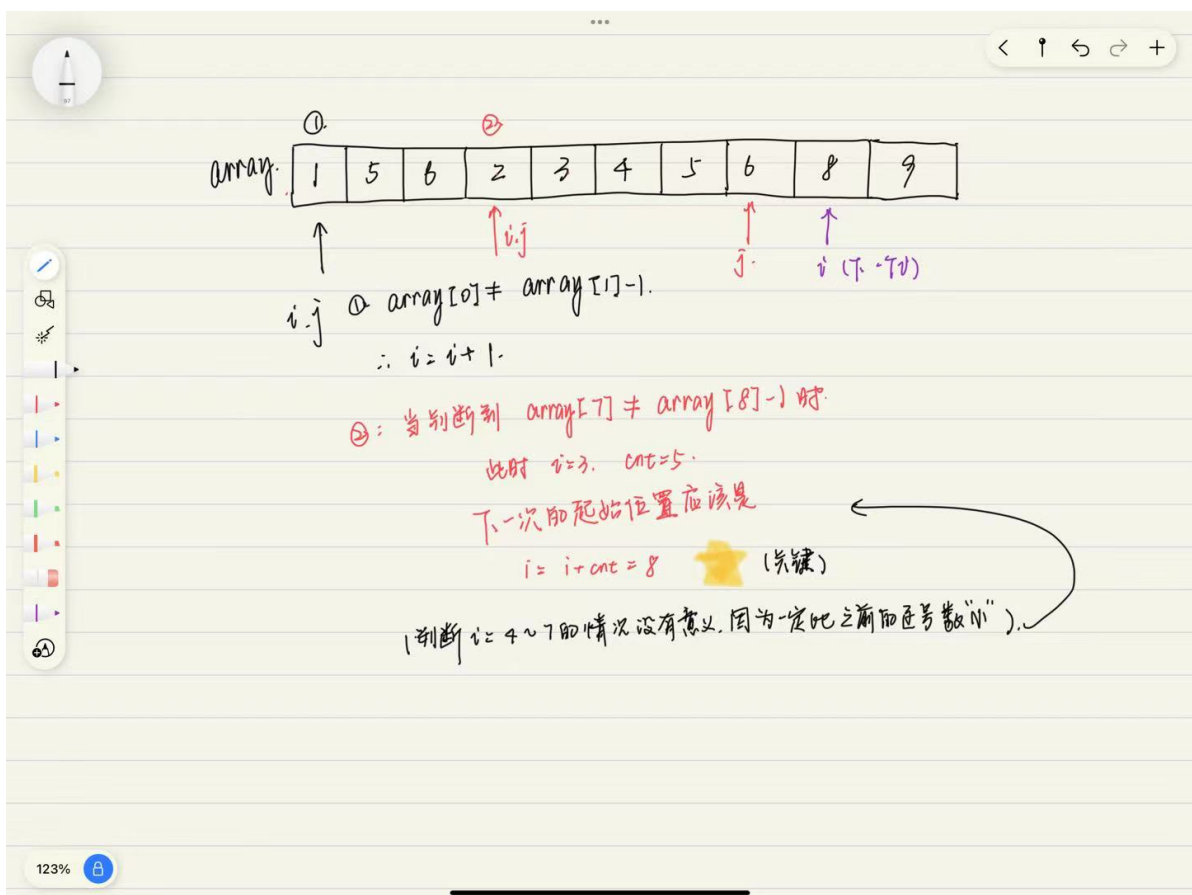 ①. ②
array. 1 5 6 2 3 4 5 6 8 9
i.j j. i (下一个i)
i.j ① array[0]≠ array[1]-1.
∴ i=i+1.
②: 当判断到 array[7]≠ array[8]-1时.
此时 i=3. cnt=5.
下一次的起始位置应该是
i= i+cnt=8 (关键)
(判断i=4~7的情况没有意义.因为一定比之前的连号数"小").
123%